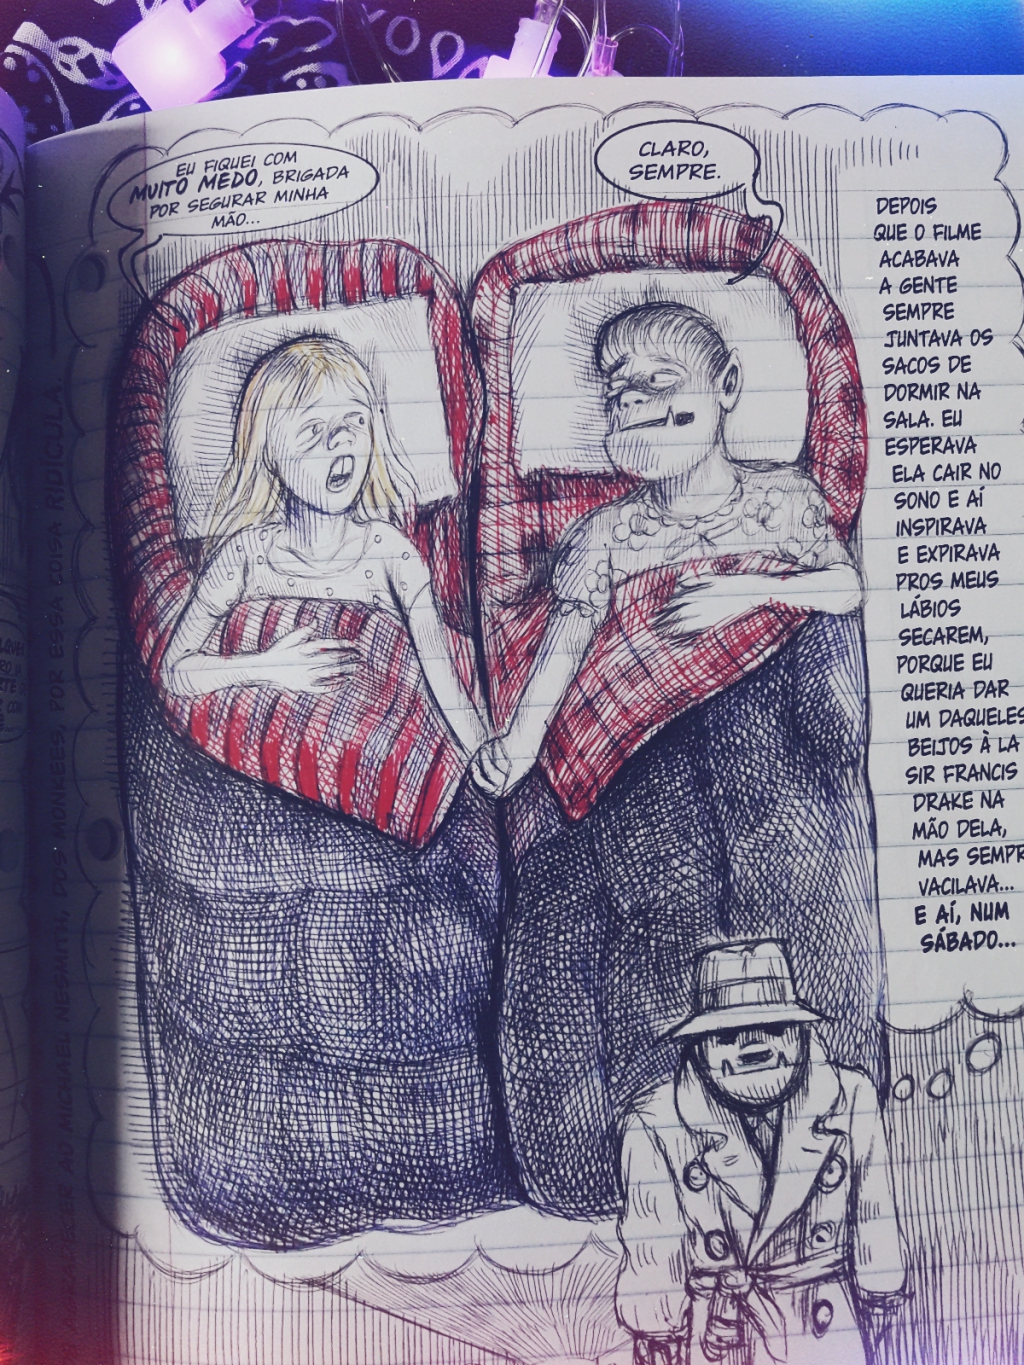 EU FIQUEI COM
MUITO MEDO, BRIGADA
POR SEGURAR MINHA
MÃO...
CLARO,
SEMPRE.
DEPOIS
QUE O FILME
ACABAVA
A GENTE
SEMPRE
JUNTAVA OS
SACOS DE
DORMIR NA
SALA. EU
ESPERAVA
ELA CAIR NO
SONO E AÍ
INSPIRAVA
E EXPIRAVA
PROS MEUS
LÁBIOS
SECAREM,
PORQUE EU
QUERIA DAR
UM DAQUELES
BEIJOS À LA
SIR FRANCIS
DRAKE NA
MÃO DELA,
MAS SEMPR
VACILAVA...
E AÍ, NUM
SÁBADO...
AO MICHAEL NESMITH, DOS MONKEES, POR ESSA COISA RIDÍCULA.